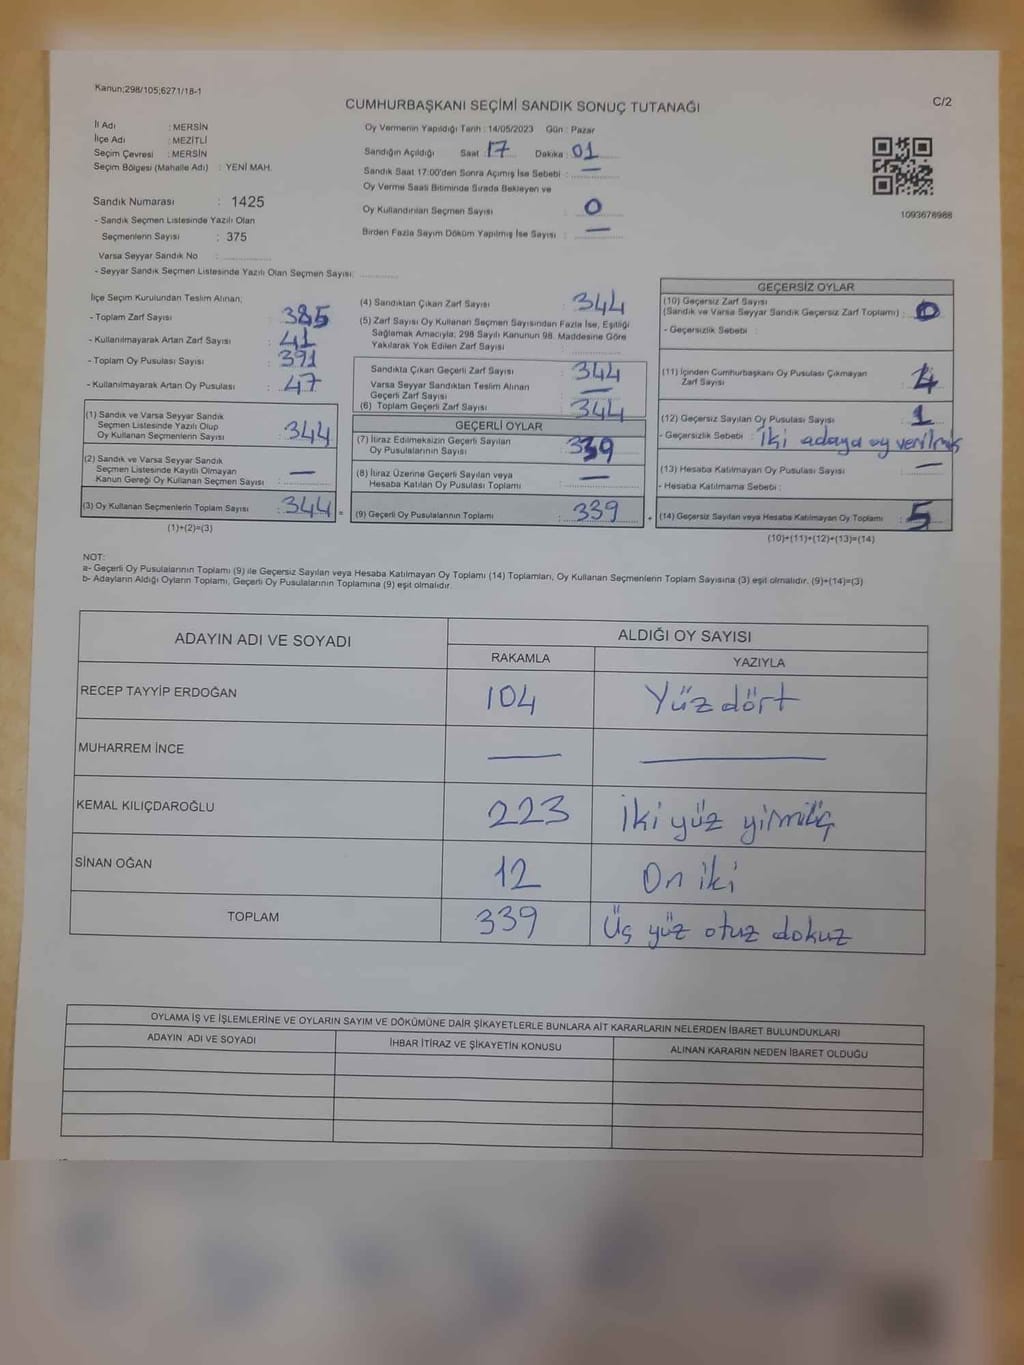 Kanun;298/105;6271/18-1
CUMHURBAŞKANI SEÇİMİ SANDIK SONUÇ TUTANAĞI
C/2
İl Adı : MERSİN
İlçe Adı : MEZİTLİ
Seçim Çevresi : MERSİN
Seçim Bölgesi (Mahalle Adı) : YENİ MAH.
Sandık Numarası : 1425
- Sandık Seçmen Listesinde Yazılı Olan
Seçmenlerin Sayısı : 375
Varsa Seyyar Sandık No :
- Seyyar Sandık Seçmen Listesinde Yazılı Olan Seçmen Sayısı:
Oy Vermenin Yapıldığı Tarih : 14/05/2023 Gün : Pazar
Sandığın Açıldığı Saat : 17 Dakika : 01
Sandık Saat 17:00'den Sonra Açımış İse Sebebi : —
Oy Verme Saati Bitiminde Sırada Bekleyen ve
Oy Kullandırılan Seçmen Sayısı : 0
Birden Fazla Sayım Döküm Yapılmış İse Sayısı : —
1093676988
İlçe Seçim Kurulundan Teslim Alınan;
- Toplam Zarf Sayısı : 385
- Kullanılmayarak Artan Zarf Sayısı : 41
- Toplam Oy Pusulası Sayısı : 391
- Kullanılmayarak Artan Oy Pusulası : 47
(1) Sandık ve Varsa Seyyar Sandık
Seçmen Listesinde Yazılı Olup
Oy Kullanan Seçmenlerin Sayısı : 344
(2) Sandık ve Varsa Seyyar Sandık
Seçmen Listesinde Kayıtlı Olmayan
Kanun Gereği Oy Kullanan Seçmen Sayısı : —
(3) Oy Kullanan Seçmenlerin Toplam Sayısı : 344 =
(1)+(2)=(3)
(4) Sandıktan Çıkan Zarf Sayısı : 344
(5) Zarf Sayısı Oy Kullanan Seçmen Sayısından Fazla İse, Eşitliği
Sağlamak Amacıyla; 298 Sayılı Kanunun 98. Maddesine Göre
Yakılarak Yok Edilen Zarf Sayısı :
Sandıkta Çıkan Geçerli Zarf Sayısı : 344
Varsa Seyyar Sandıktan Teslim Alınan
Geçerli Zarf Sayısı : —
(6) Toplam Geçerli Zarf Sayısı : 344
GEÇERLİ OYLAR
(7) İtiraz Edilmeksizin Geçerli Sayılan
Oy Pusulalarının Sayısı : 339
(8) İtiraz Üzerine Geçerli Sayılan veya
Hesaba Katılan Oy Pusulası Toplamı : —
(9) Geçerli Oy Pusulalarının Toplamı : 339 +
GEÇERSİZ OYLAR
(10) Geçersiz Zarf Sayısı
(Sandık ve Varsa Seyyar Sandık Geçersiz Zarf Toplamı) : 0
- Geçersizlik Sebebi :
(11) İçinden Cumhurbaşkanı Oy Pusulası Çıkmayan
Zarf Sayısı : 4
(12) Geçersiz Sayılan Oy Pusulası Sayısı : 1
- Geçersizlik Sebebi : iki adaya oy verilmiş
(13) Hesaba Katılmayan Oy Pusulası Sayısı : —
- Hesaba Katılmama Sebebi :
(14) Geçersiz Sayılan veya Hesaba Katılmayan Oy Toplamı : 5
(10)+(11)+(12)+(13)=(14)
NOT:
a- Geçerli Oy Pusulalarının Toplamı (9) ile Geçersiz Sayılan veya Hesaba Katılmayan Oy Toplamı (14) Toplamları, Oy Kullanan Seçmenlerin Toplam Sayısına (3) eşit olmalıdır. (9)+(14)=(3)
b- Adayların Aldığı Oyların Toplamı, Geçerli Oy Pusulalarının Toplamına (9) eşit olmalıdır.
ADAYIN ADI VE SOYADI
ALDIĞI OY SAYISI
RAKAMLA YAZIYLA
RECEP TAYYİP ERDOĞAN 104 Yüz dört
MUHARREM İNCE — —
KEMAL KILIÇDAROĞLU 223 İki yüz yirmiüç
SİNAN OĞAN 12 On iki
TOPLAM 339 Üç yüz otuz dokuz
OYLAMA İŞ VE İŞLEMLERİNE VE OYLARIN SAYIM VE DÖKÜMÜNE DAİR ŞİKAYETLERLE BUNLARA AİT KARARLARIN NELERDEN İBARET BULUNDUKLARI
ADAYIN ADI VE SOYADI İHBAR İTİRAZ VE ŞİKAYETİN KONUSU ALINAN KARARIN NEDEN İBARET OLDUĞU